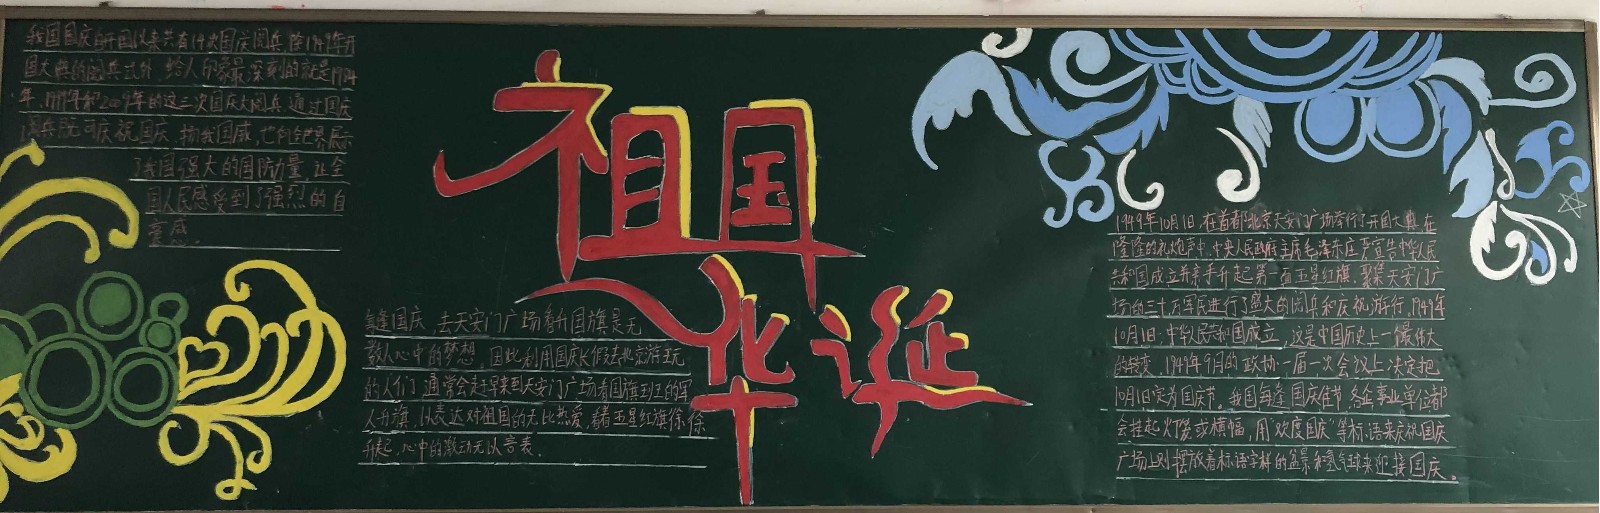 我国国庆自开国以来共有14次国庆阅兵,除1949年开
国大典的阅兵式外,给人印象最深刻的就是1984
年、1999年和2009年的这三次国庆大阅兵,通过国庆
阅兵既可庆祝国庆,扬我国威,也向全世界展示
了我国强大的国防力量,让全
国人民感受到了强烈的自
豪感.
祖国
华诞
每逢国庆,去天安门广场看升国旗是无
数人心中的梦想,因此利用国庆长假去北京游玩
的人们,通常会赶早来到天安门广场看国旗班的军
人升旗,以表达对祖国的无比热爱,看着五星红旗徐徐
升起,心中的激动无以言表.
1949年10月1日,在首都北京天安门广场举行了开国大典,在
隆隆的礼炮声中,中央人民政府主席毛泽东庄严宣告中华人民
共和国成立并亲手升起第一面五星红旗,聚集天安门广
场的三十万军民进行了盛大的阅兵和庆祝游行,1949年
10月1日,中华人民共和国成立,这是中国历史上一个最伟大
的转变,1949年9月的政协一届一次会议上决定把
10月1日定为国庆节,我国每逢国庆佳节,各企事业单位都
会挂起灯笼或横幅,用"欢度国庆"等标语来庆祝国庆
广场上则摆放着标语字样的盆景和氢气球来迎接国庆。